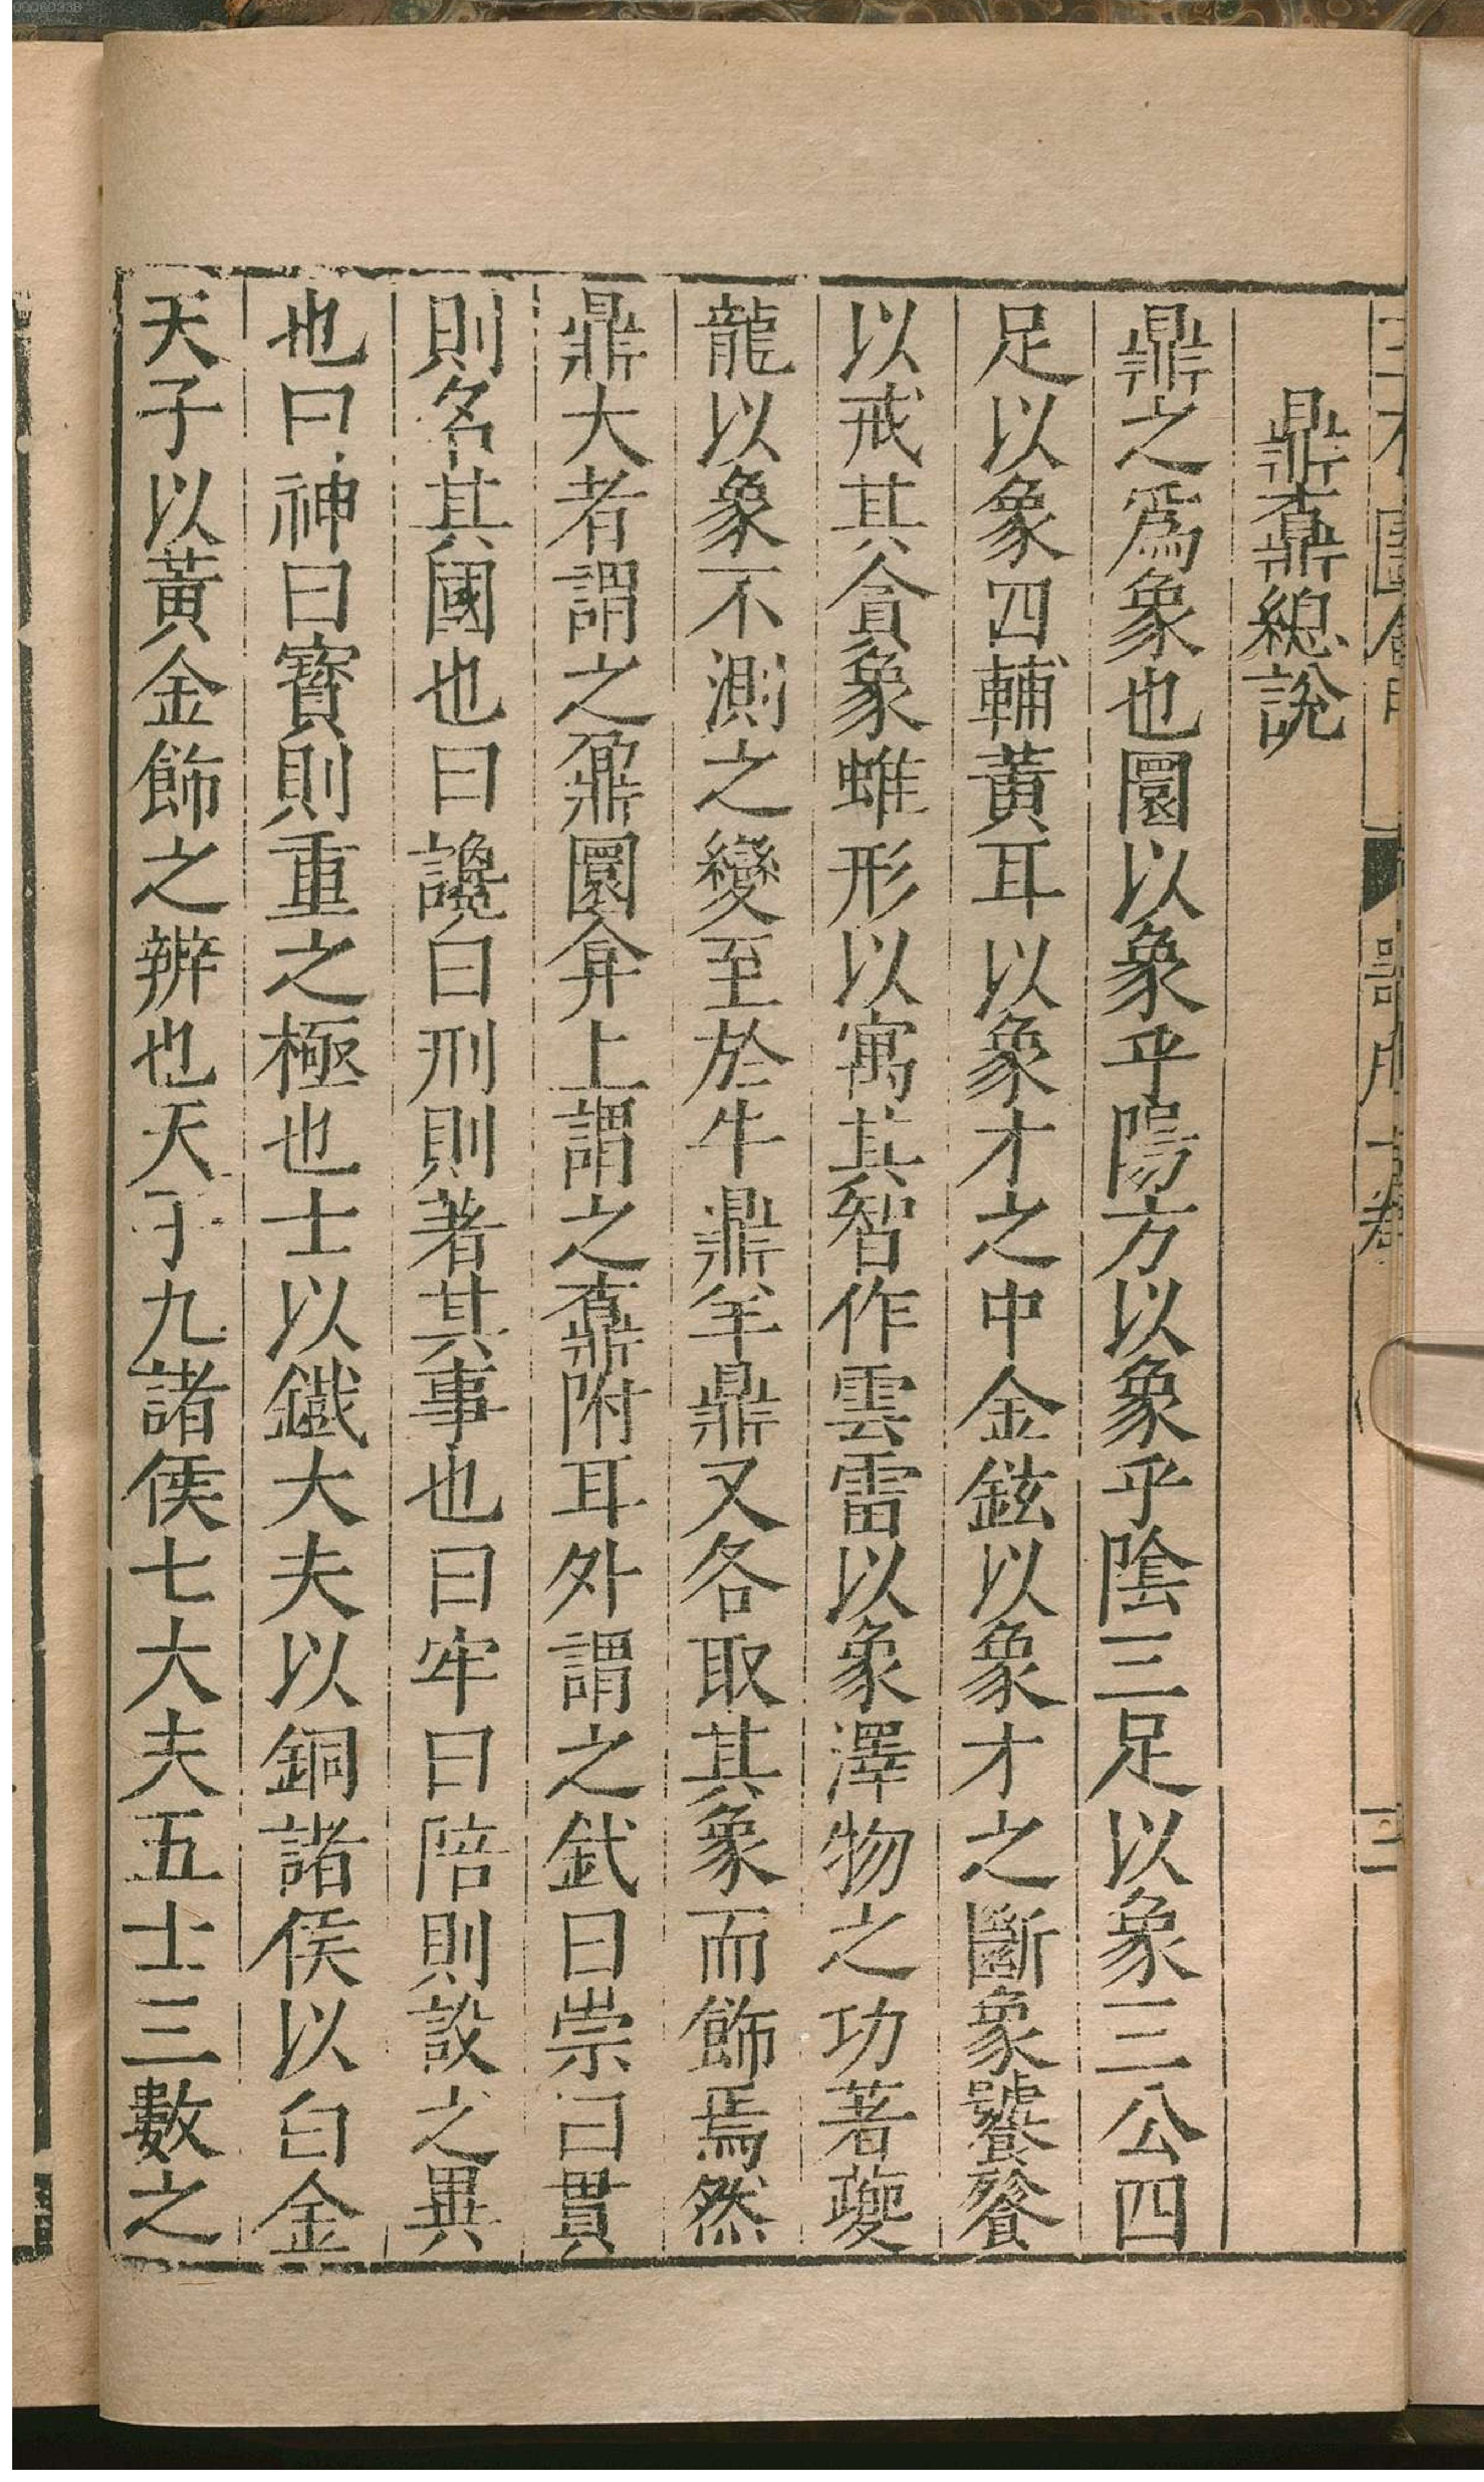 鼎鼒總說
鼎之爲象也圜以象乎陽方以象乎陰三足以象三公四
足以象四輔黃耳以象才之中金鉉以象才之斷象饕餮
以戒其貪象蜼形以寓其智作雲雷以象澤物之功著夔
龍以象不測之變至於牛鼎羊鼎又各取其象而飾焉然
鼎大者謂之鼐圜弇上謂之鼒附耳外謂之釴曰崇曰貫
則名其國也曰讒曰刑則著其事也曰牢曰陪則設之異
也曰神曰寳則重之極也士以鐵大夫以銅諸侯以白金
天子以黃金飾之辨也天子九諸侯七大夫五士三數之